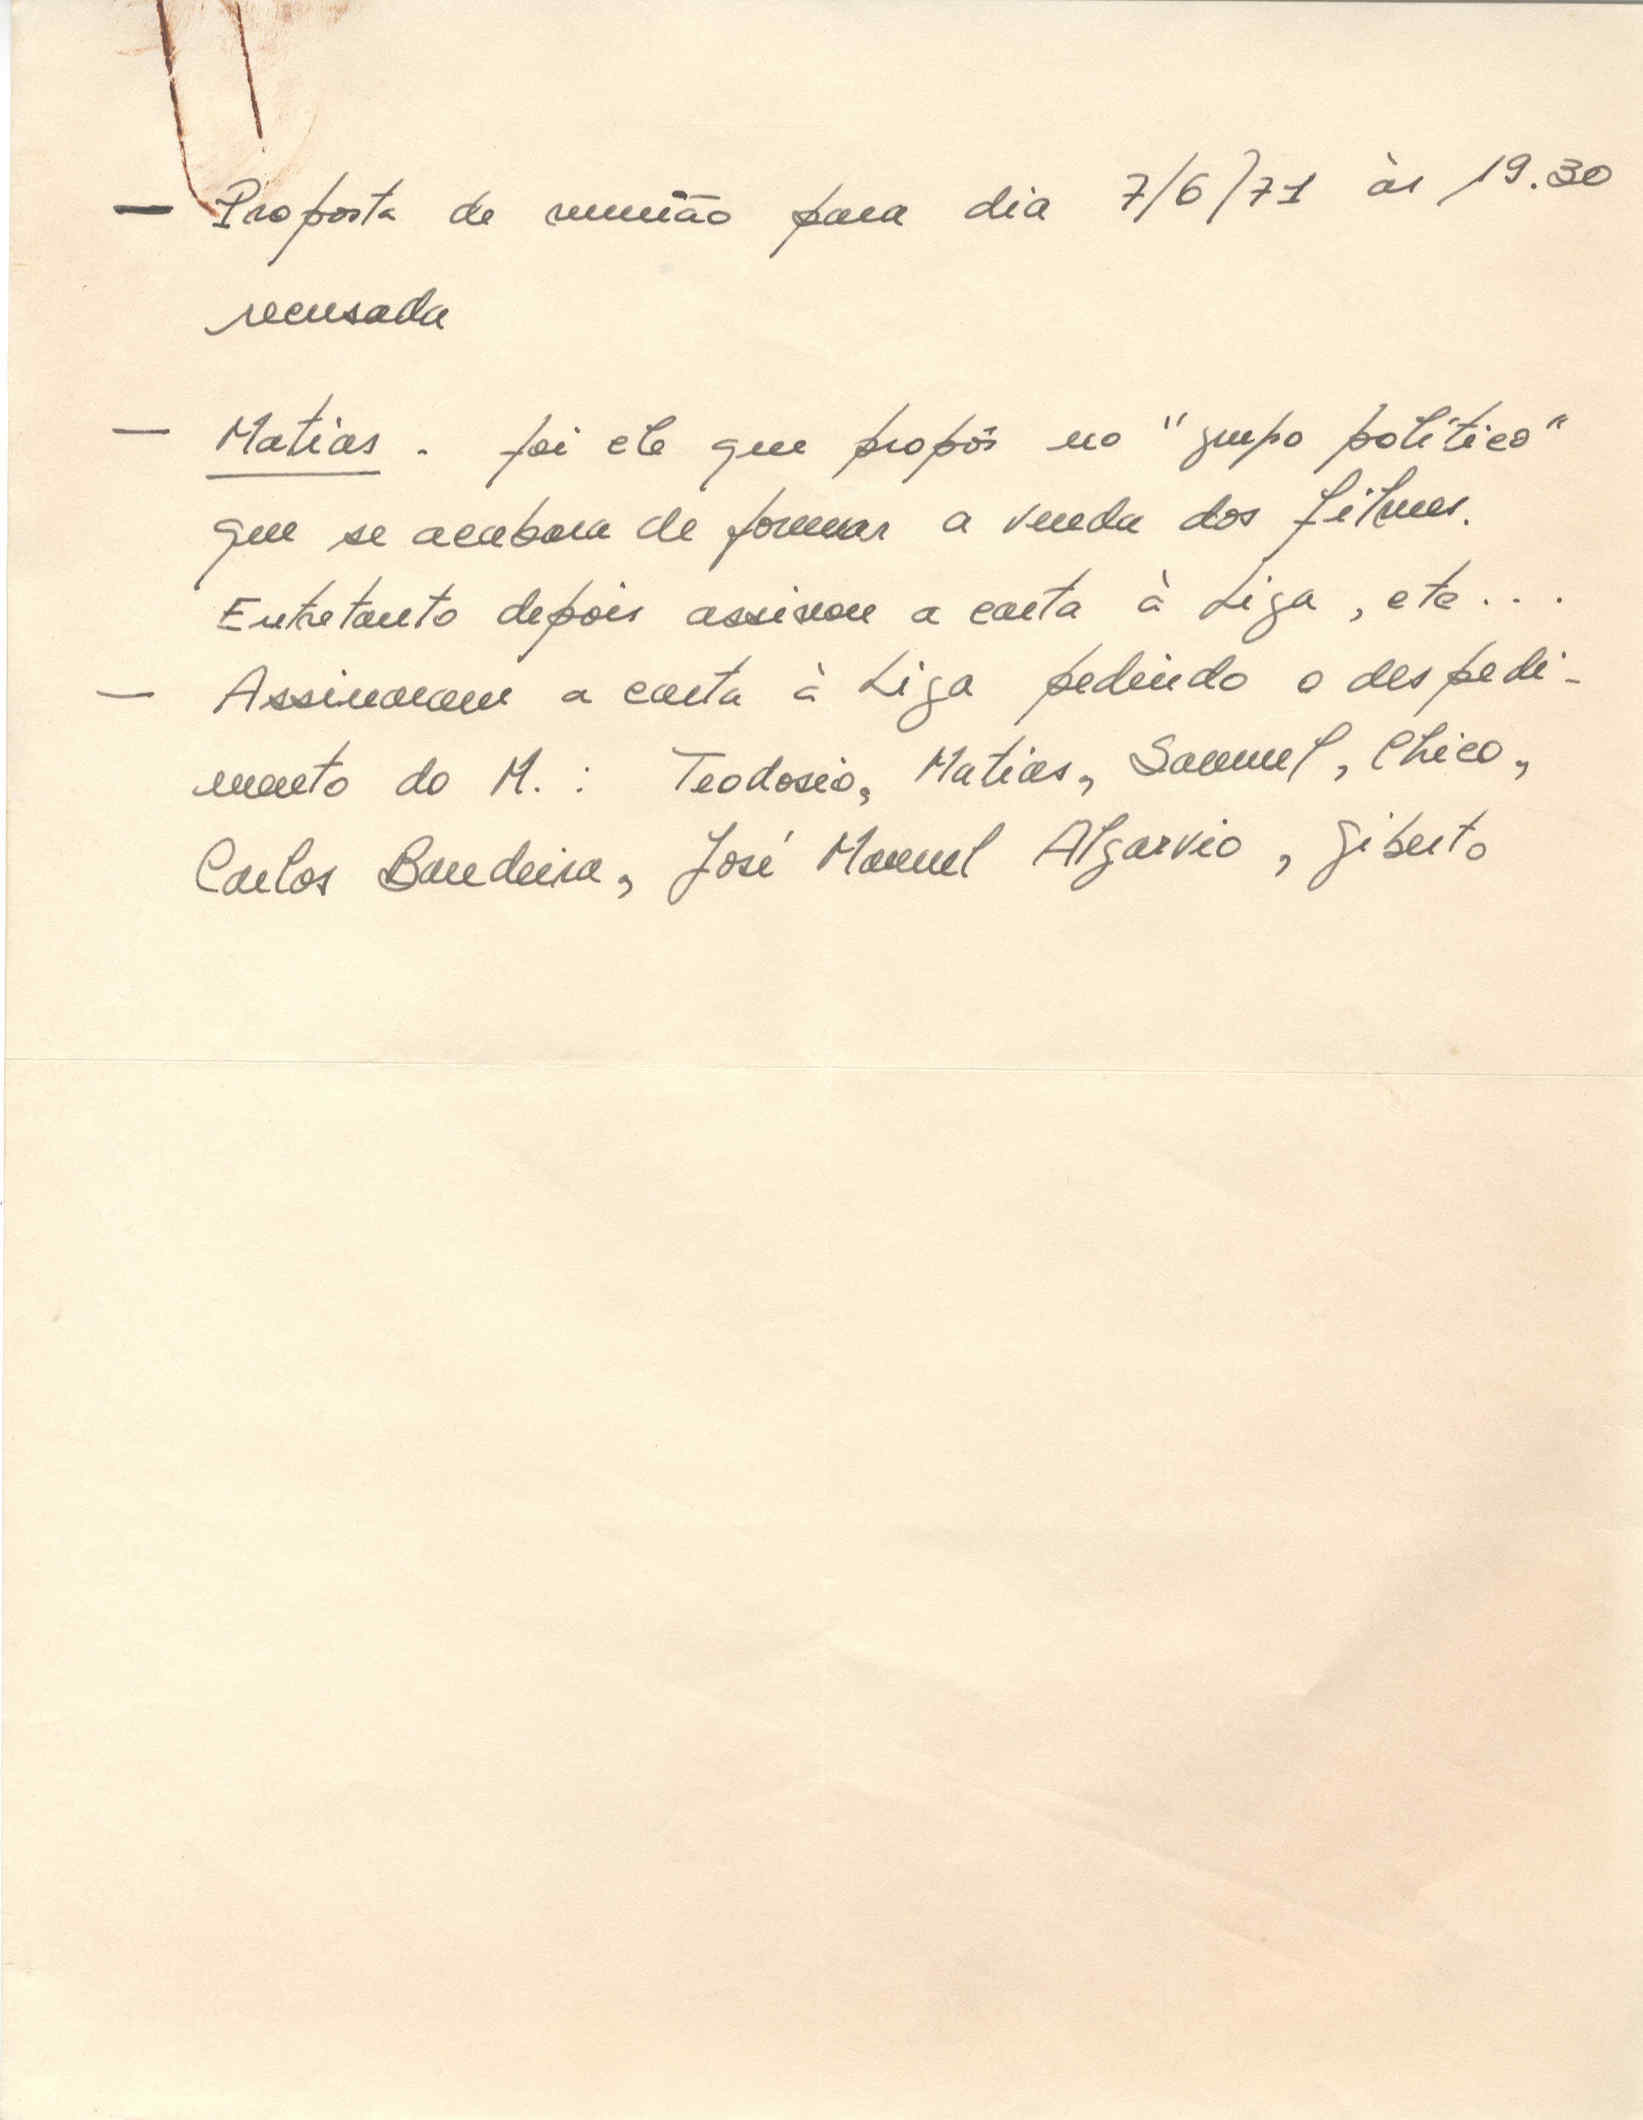 — Proposta de reunião para dia 7/6/71 às 19.30
recusada
— Matias . foi ele que propôs no "grupo político"
que se acabara de formar a venda dos filmes.
Entretanto depois assinou a carta à Liga, etc...
— Assinaram a carta à Liga pedindo o despedi-
mento do M. : Teodosio, Matias, Samuel, Chico,
Carlos Bandeira, José Manuel Algarvio, Giberto